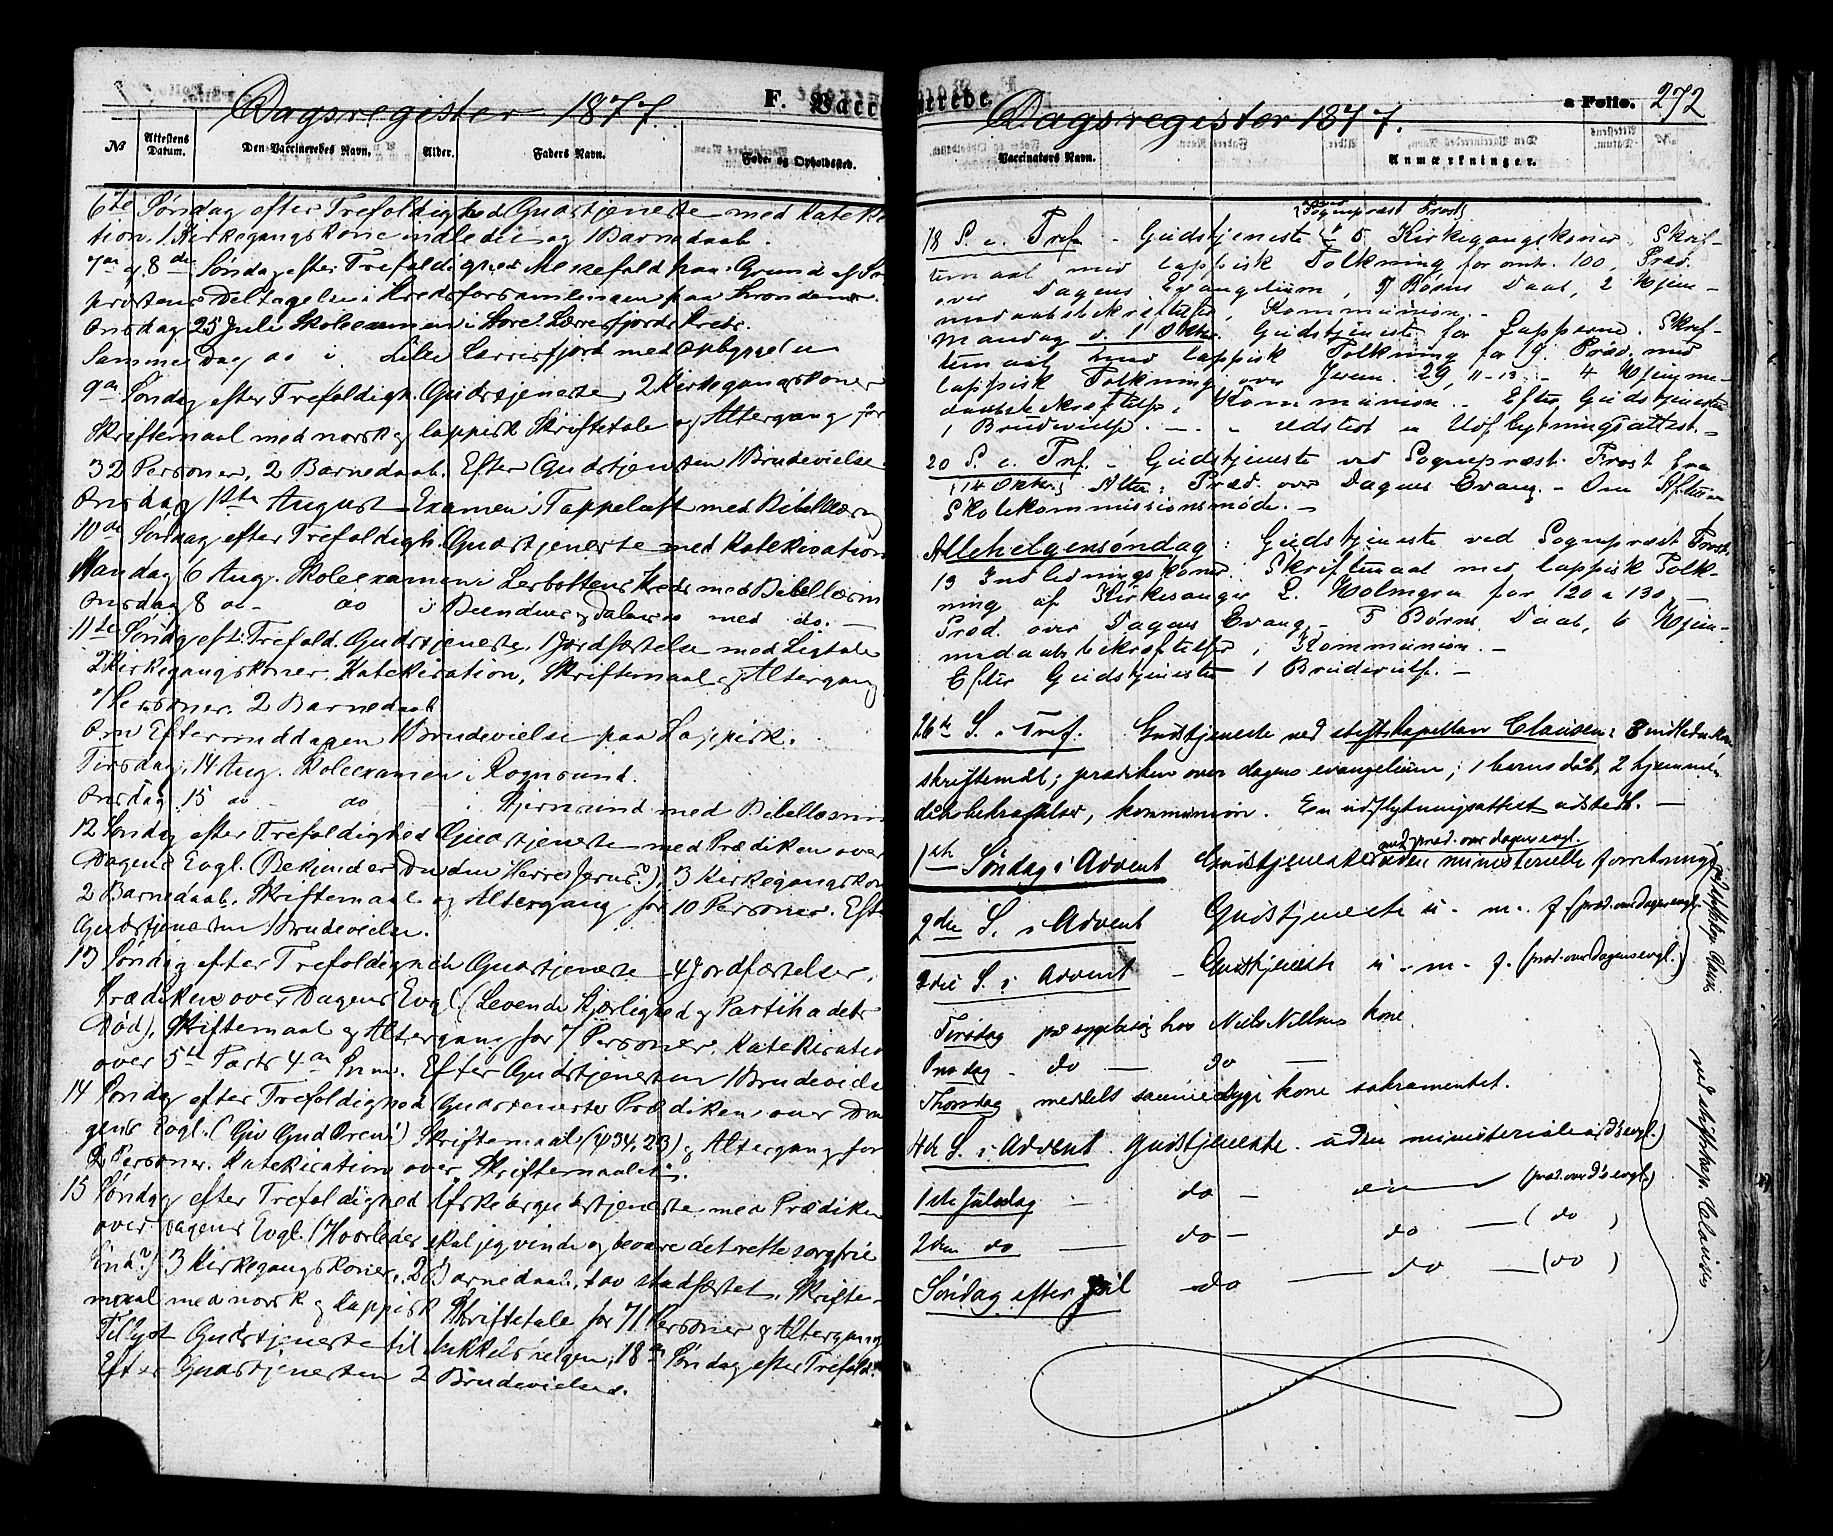 Dagsregister 1877.
F. Vacc
No
Attestens Datum.
Den Vaccineredes Navn.
Alder.
Faders Navn.
Føde- og Opholdssted.
6te Søndag efter Trefoldighed Gudstjeneste med Kateki-
tion. 1 Kirkegangskone indledet og 1 Barnedaab.
7de og 8de Søndag efter Trefoldighed Messefald paa Grund af
prostens Deltagelse i Kredsforsamlingen paa
Onsdag 25 Juli Skoleexamen i Store Lerresfjords Kreds.
Samme Dag do i Lille Lerresfjord med
9de Søndag efter Trefoldigh. Gudstjeneste, 2 Kirkegangskoner
Skriftemaal med norsk og lappisk Skriftetale og Altergang for
32 Personer, 2 Barnedaab. Efter Gudstjenesten 1 Brudevielse.
Onsdag 1ste August Examen i Tappeluft med Bibellæsning
10de Søndag efter Trefoldigh. Gudstjeneste med Katekisation
Mandag 6 Aug. Skoleexamen i Lerbottens Kreds med Bibellæsni
Onsdag 8 do - do i og med do. -
11te Søndag eft. Trefold. Gudstjeneste. 1 Jordfæstelse med Ligtale
2 Kirkegangskoner. Katekisation, Skriftemaal og Altergang
7 Personer. 2 Barnedaab
Om Eftermiddagen 1 Brudevielse paa Lappisk.
Tirsdag 14 Aug. Skoleexamen i Rognsund.
Onsdag 15 do - do - i Stjernsund med Bibellæsnin
12 Søndag efter Trefoldighed Gudstjeneste med Prædiken over
Dagens Evgl. (Bekjender Du din Herre Jesus?), 3 Kirkegangskon
2 Barnedaab. Skriftemaal og Altergang for 10 Personer. Eft
Gudstjenesten 1 Brudevielse.
13 Søndag efter Trefoldighed Gudstjeneste - 4 Jordfæstelser,
Prædiken over Dagens Evgl (Levende Kjærlighed og
Død). Skriftemaal og Altergang for 7 Personer. Katekisatio
over 5te Parts 4de
Efter Gudstjenesten 1 Brudeviels
14 Søndag efter Trefoldighed Gudstjeneste Prædiken over Da
gens Evgl. (Giv Gud Æren!) Skriftemaal (ψ 34, 23) og Altergang for
2 Personer. Katekisation over Skriftemaalet.
15 Søndag efter Trefoldighed Gudstjeneste med Prædiken
over Dagens Evgl. (Hvorledes skal jeg vinde og bevare det rette sorgfrie
Sind?) 3 Kirkegangskoner, 2 Barnedaab, stadfæstet, Skrifte-
maal med norsk og lappisk Skriftetale for 71 Personer og Altergang
Tillyst Gudstjeneste til Mikkelshelgen, 18de Søndag efter Trefold.
Efter Gudstjenesten 2 Brudevielser.
nerede.
Dagsregister 1877.
a Folio. 272
Vaccinators Navn.
Anmærkninger.
ved Sognepræst Frost
18 S. e. Tref. - Gudstjeneste 5 Kirkegangskoner. Skrif-
temaal med lappisk Tolkning for omtr. 100, Præd.
over Dagens Evangelium, 9 Børns Daab, 2 Hjem-
medaabsbekræftelser, Kommunion. -
Mandag d. 1 Oktbr. Gudstjeneste for Lapperne. Skrif-
temaal med lappisk Tolkning for 9. Præd. med
lappisk Tolkning over Jerem. 29, 11-13. - 4 Hjemme-
daabsbekræftelser, Kommunion. - Efter Gudstjenesten
1 Brudevielse. - . - Udstedt en Udflytningsattest. -
20 S. e. Tref. - Gudstjeneste ved Sognepræst Frost fra
(14 Oktbr.) Alten: Præd. over Dagens Evang. - Om Aftenen
Skolekommissionsmøde. -
Allehelgensøndag: Gudstjeneste ved Sognepræst Frost.
13 Indledningskoner. Skriftemaal med lappisk Tolk-
ning af Kirkesanger L. Holmgren for 120 a 130. -
Præd. over Dagens Evang. - 5 Børns Daab, 6 Hjem-
medaabsbekræftelser, Kommunion. -
Efter Gudstjenesten 1 Brudevielse. -
26de S. e. Tref. Gudstjeneste ved stiftskapellan Clausen: 3
skriftemål; prædiken over dagens evangelium; 1 barnedåb, 2 hjemme-
dåbsbekræftelser, kommunion. En udflytningsattest udstedt. -
med præd. over dagens evgl.
1ste Søndag i Advent Gudstjeneste uden ministerielle forretninger
2den S. i Advent Gudstjeneste u. m. f. (præd. over dagens evgl.
3die S. i Advent - Gudstjeneste u. m. f. (præd. over Dagens evgl.)
Tirsdag på sygebesøg hos Niels Nilsens kone.
Onsdag - do - do -
Thorsdag meddelt samme syge kone sakramentet.
4de S. i Advent. Gudstjeneste uden ministeriale
1ste Juledag - do - do - (præd. over d's evgl.)
2den do - do - do - (do)
Søndag efter Jul do - do - (do)
ved stiftskap. Clausen